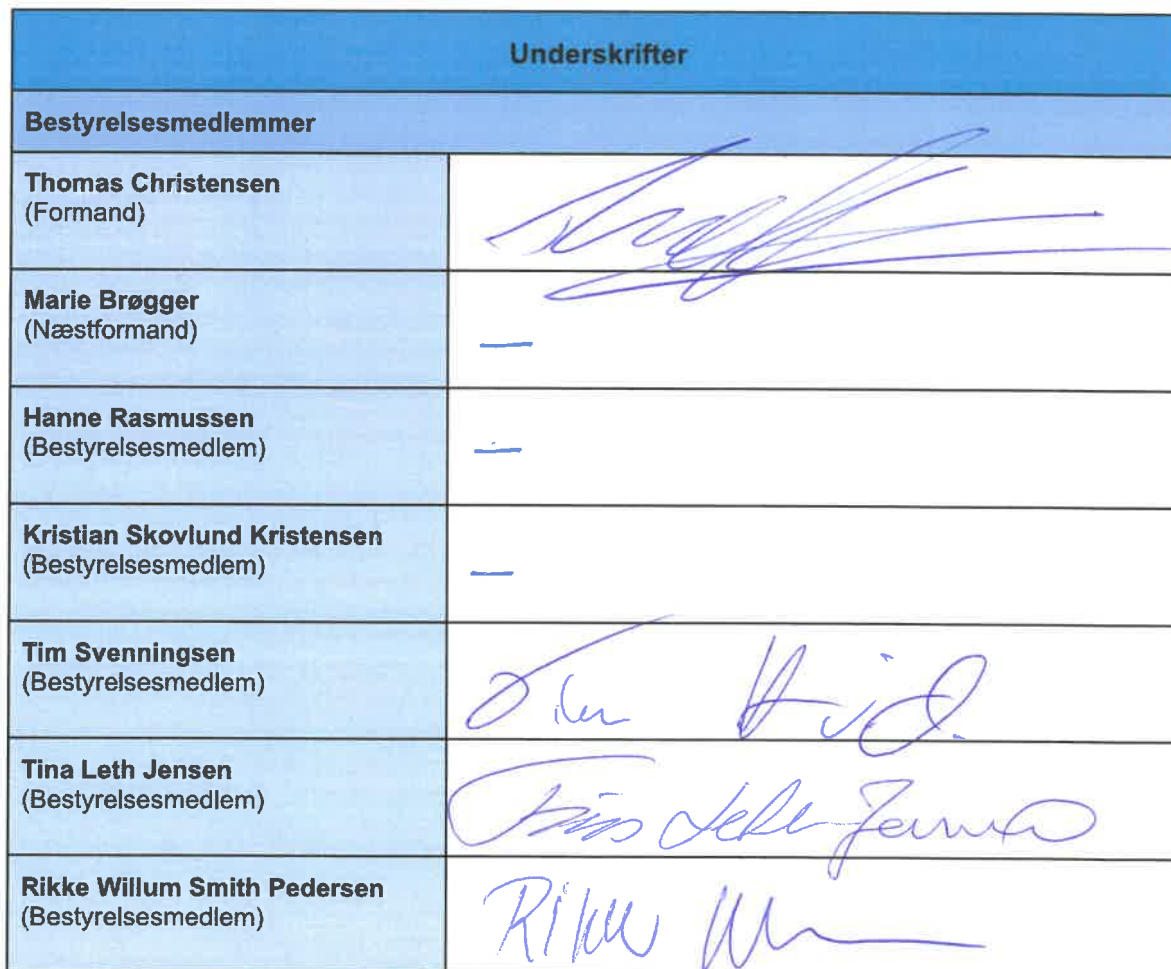 Underskrifter
Bestyrelsesmedlemmer
Thomas Christensen
(Formand)
Marie Brøgger
(Næstformand)
—
Hanne Rasmussen
(Bestyrelsesmedlem)
—
Kristian Skovlund Kristensen
(Bestyrelsesmedlem)
—
Tim Svenningsen
(Bestyrelsesmedlem)
Tim
Tina Leth Jensen
(Bestyrelsesmedlem)
Tina Leth Jensen
Rikke Willum Smith Pedersen
(Bestyrelsesmedlem)
Rikke